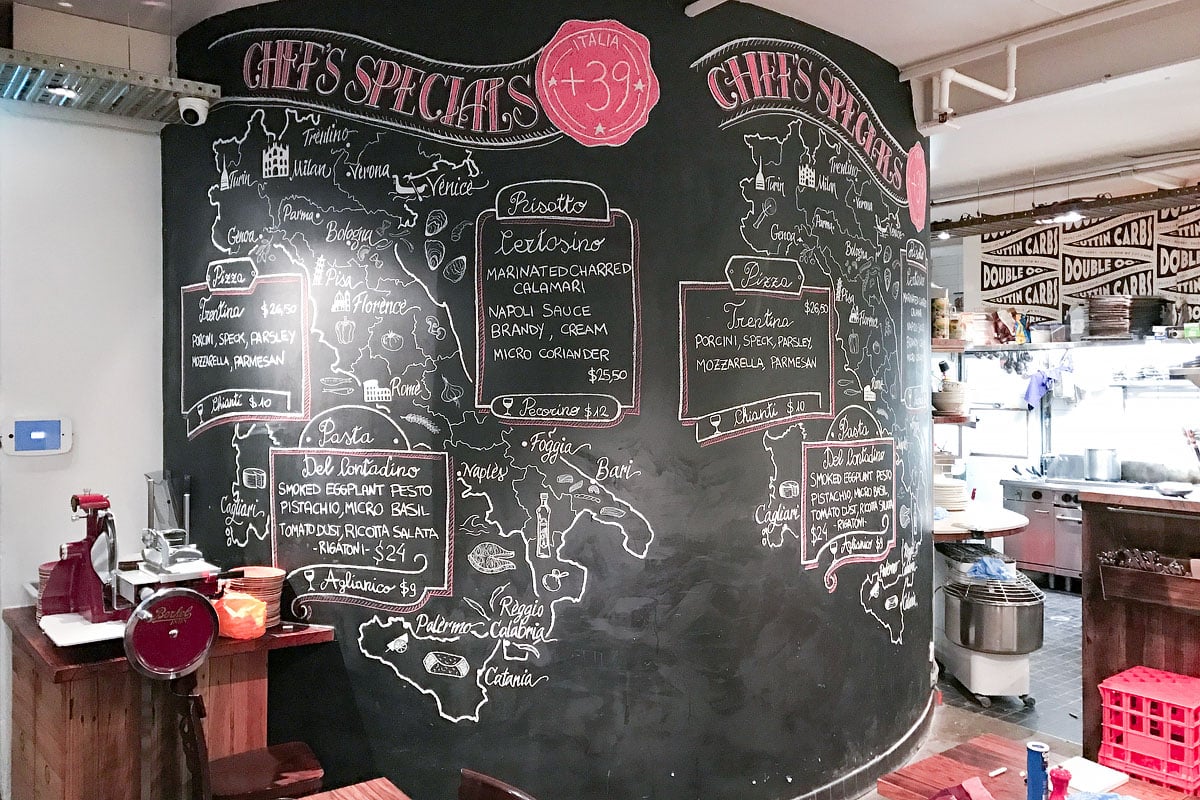 CHEF'S SPECIALS
ITALIA
+39
Trentino
Turin
Milan
Verona
Venice
Parma
Genoa
Bologna
Pisa
Florence
Rome
Cagliari
Foggia
Naples
Bari
Reggio
Calabria
Palermo
Catania
Pizza
Trentina $26,50
PORCINI, SPECK, PARSLEY
MOZZARELLA, PARMESAN
Chianti $10
Risotto
Certosino
MARINATED CHARRED
CALAMARI
NAPOLI SAUCE
BRANDY, CREAM
MICRO CORIANDER
$25,50
Pecorino $12
Pasta
Del Contadino
SMOKED EGGPLANT PESTO
PISTACHIO, MICRO BASIL
TOMATO DUST, RICOTTA SALATA
-RIGATONI- $24
Aglianico $9
CHEF'S SPECIALS
Trentino
Turin
Milan
Verona
Parma
Genoa
Bologna
Pisa
Florence
Rome
Cagliari
Pizza
Trentina $26,50
PORCINI, SPECK, PARSLEY,
MOZZARELLA, PARMESAN
Chianti $10
Pasta
Del Contadino
SMOKED EGGPLANT PESTO
PISTACHIO, MICRO BASIL
TOMATO DUST, RICOTTA SALATA
$24 -RIGATONI-
Aglianico $9
Berkel
CUTTIN CARBS
DOUBLE
CUTTIN CARBS
DOUBLE
CUTTIN CARBS
DOUBLE